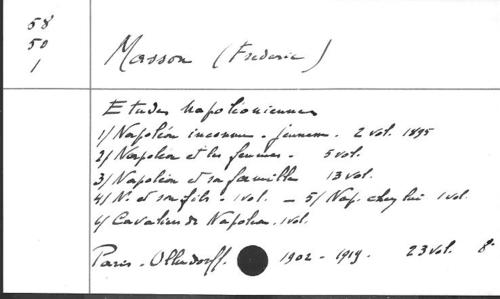 58
50
1
Masson (Frederic)
Etudes Napoléoniennes
1/ Napoléon inconnu - jeunesse. 2 vol. 1895
2/ Napoléon et les femmes - 5 vol.
3/ Napoléon et sa famille 13 vol.
4/ N. et son fils - 1 vol. - 5/ Nap. chez lui 1 vol.
6/ Cavaliers de Napoléon. 1 vol.
Paris - Ollendorff. 1902 - 1919. 23 vol. 8°